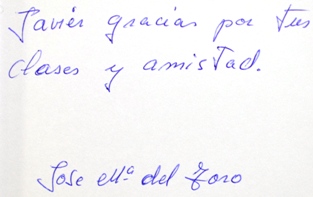 Javier gracias por tus
clases y amistad.
Jose Mª del Toro